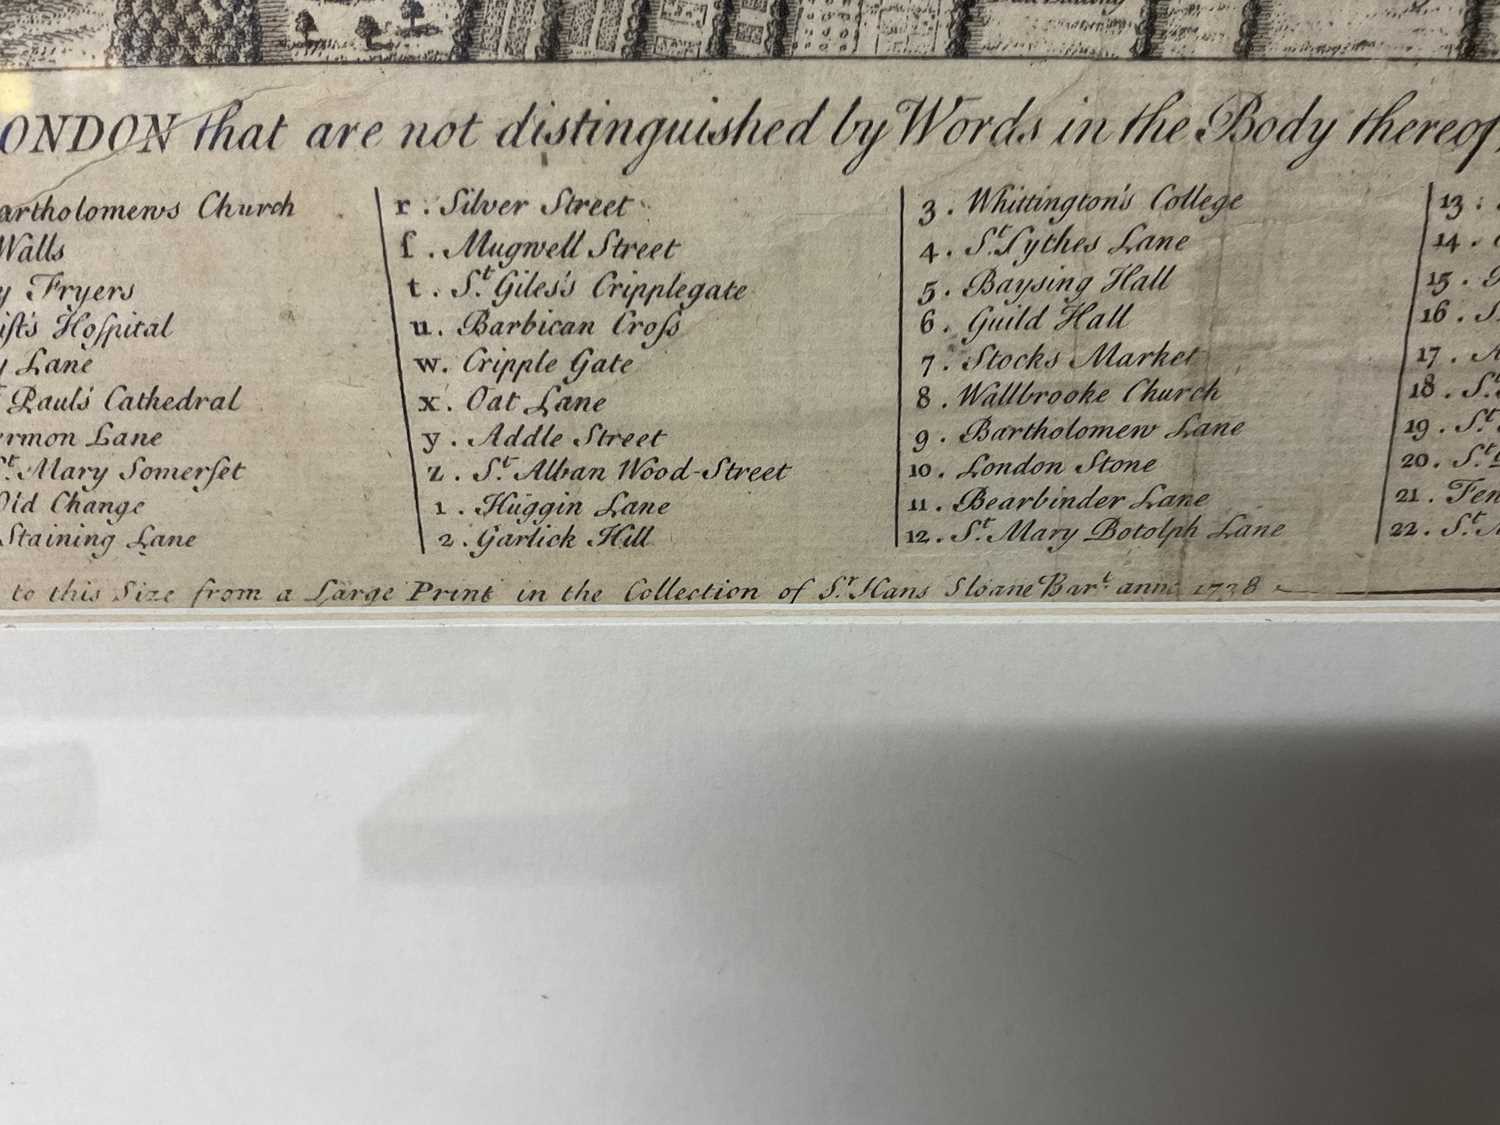 ONDON that are not distinguished by Words in the Body thereof,
artholomews Church
Walls
y Fryers
ist's Hoſpital
y Lane
Paul's Cathedral
ermon Lane
St. Mary Somerſet
Old Change
Staining Lane
r. Silver Street
ſ. Mugwell Street
t. St. Giles's Cripplegate
u. Barbican Croſs
w. Cripple Gate
x. Oat Lane
y. Addle Street
z. St. Alban Wood-Street
1. Huggin Lane
2. Garlick Hill
3. Whittington's College
4. St. Sythes Lane
5. Baysing Hall
6. Guild Hall
7. Stocks Market
8. Wallbrooke Church
9. Bartholomew Lane
10. London Stone
11. Bearbinder Lane
12. St. Mary Botolph Lane
13.
14.
15.
16.
17.
18. St.
19. St.
20. St.
21. Fen
22. St.
to this Size from a Large Print in the Collection of Sr. Hans Sloane Bart. anno 1738